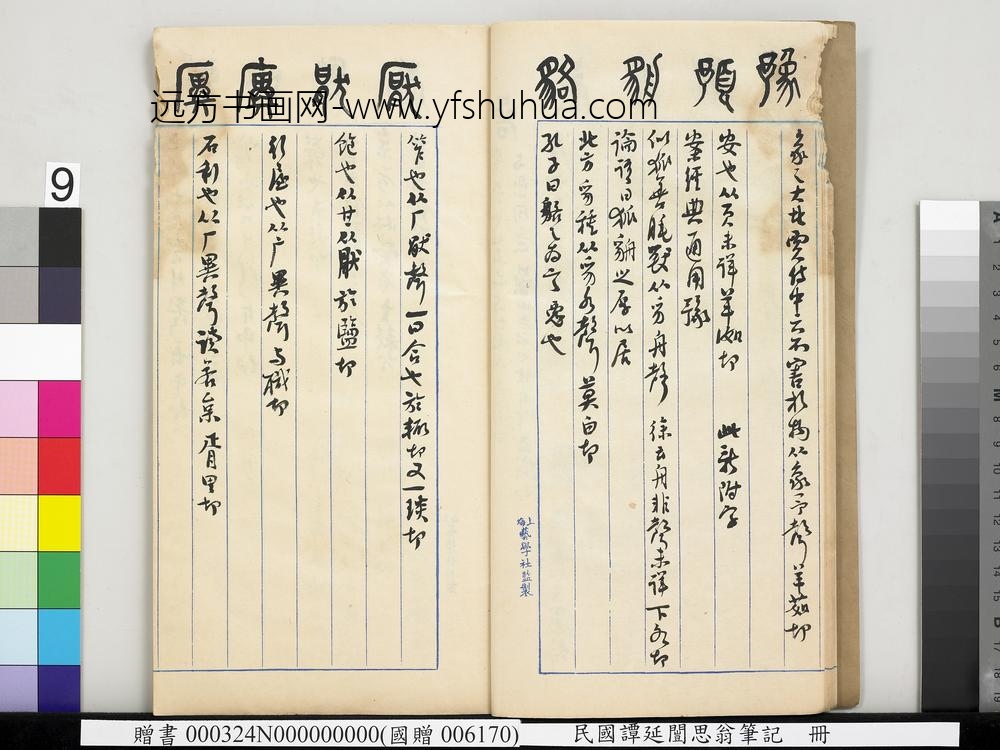 豫 預 貈 貉
象之大者賈侍中云不害於物从象予聲羊茹切
安也从頁未詳羊洳切 此新附字
案經典通用豫
似狐善睡獸从豸舟聲 徐云舟非聲未詳 下各切
論語曰狐貈之厚以居
北方豸種从豸各聲 莫白切
孔子曰貉之為言惡也
上海藝學社監製
厭 猒 廙
笮也从厂猒聲一曰合也於輒切又一琰切
飽也从甘从肰於鹽切
行屋也从广異聲与職切
石利也从厂異聲讀若枲胥里切
远方书画网-www.yfshuhua.com
9
贈書 000324N000000000(國贈 006170)
民國譚延闓思翁筆記 冊